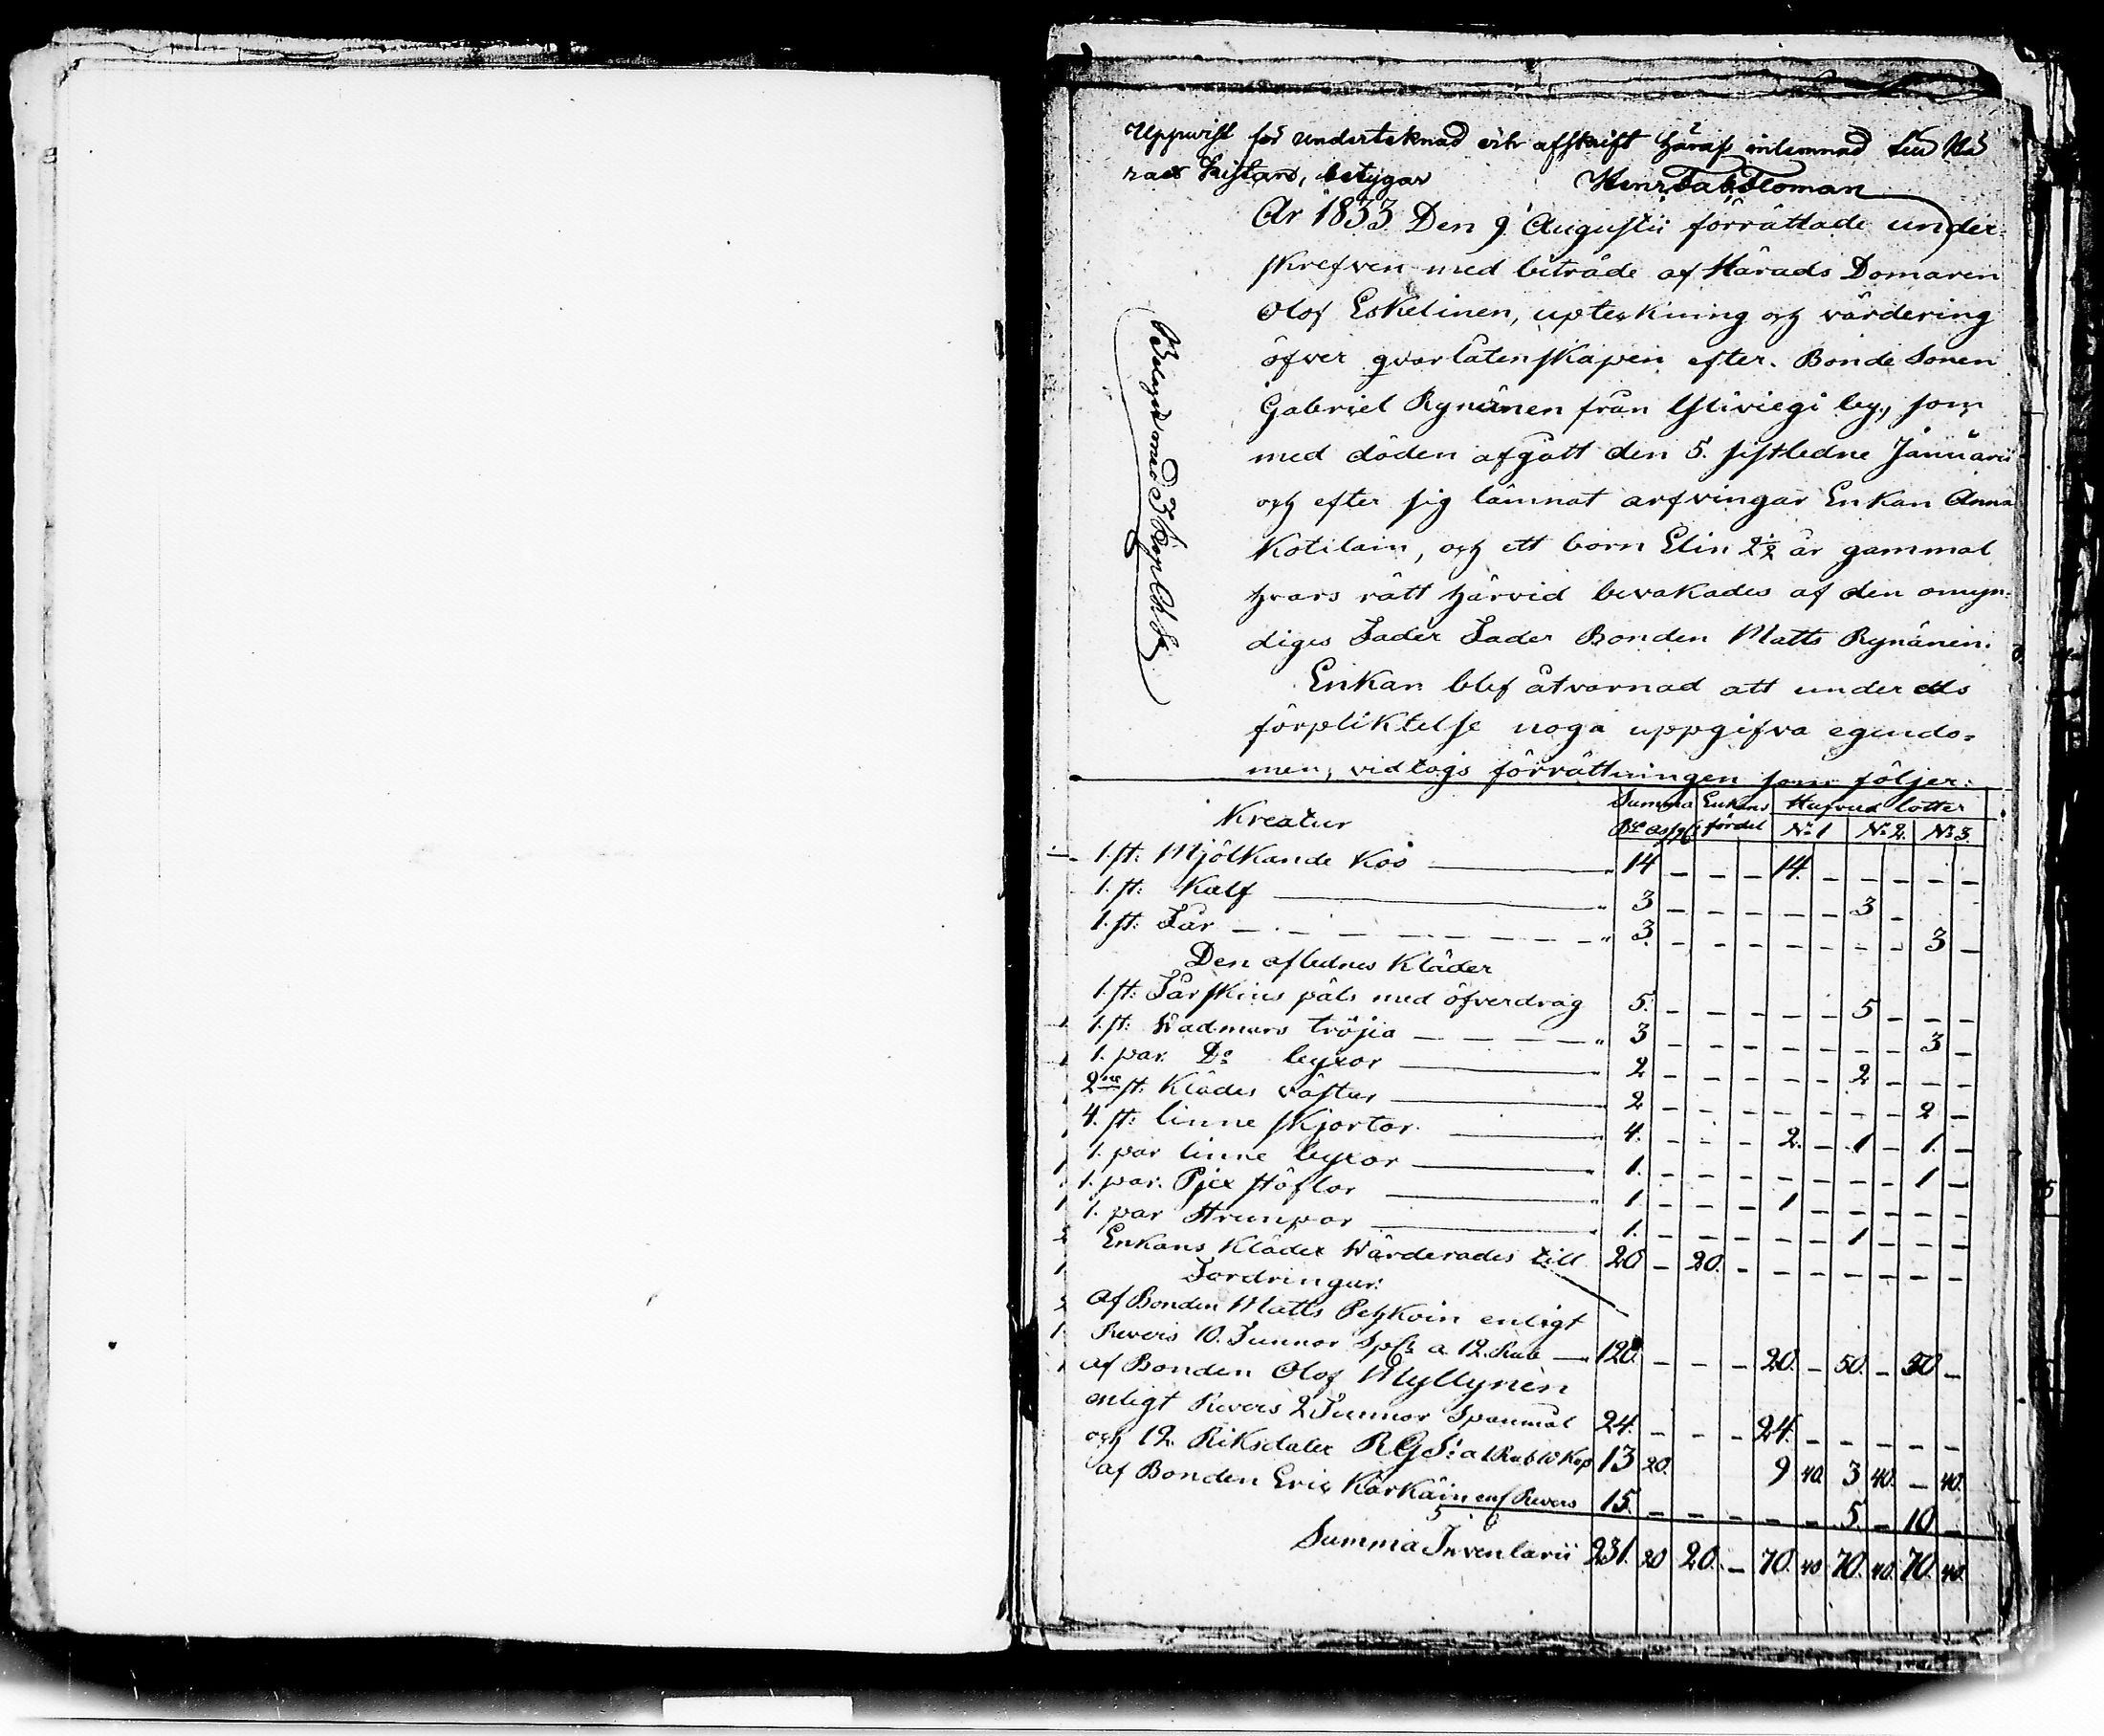 Uppvist för undertecknad och afskrift häraf inlemnad till Hä
rads Kistan, betygar Henr Fab Floman
År 1833 Den 9 Augusti förrättade under-
skrefven med biträde af Härads Domaren
Olof Eskelinen, upteckning och värdering
öfver qvarlåtenskapen efter Bonde Sonen
Gabriel Rynänen från by, som
med döden afgått den 5. sistledne Januarii
och efter sig lämnat arfvingar Enkan Anna
Kotilain, och ett barn Elin 2½ år gammal
hvars rätt härvid bevakades af den omyn-
diges Fader Fader Bonden Matts Rynänen.
Enkan blef åtvarnad att under eds
förpliktelse noga uppgifva egendo-
men, vidtogs förrättningen som följer:
Belagd med
Kreatur Summa Enkans fördel Hufvud lotter
No 1 No 2. No 3.
1. st: Mjölkande Ko 14 – – – 14. – – – – –
1. st: Kalf 3 – – – – – 3 –
1. st: Får 3. – – – – – – – 3 –
Den aflednes Kläder
1. st: Fårskins päls med öfverdrag 5. – – – – – 5 – – –
1. st: Wadmars tröjia 3 – – – – – – – 3 –
1. par Do byxor 2 – – – – – 2 – – –
2ne st: Klädes västar 2 – – – – – – – 2 –
4. st: linne skjortor 4. – – – 2. – 1 – 1. –
1. par linne byxor 1. – – – – – – – 1 –
1. par. Pjex stöflor 1. – – – 1 – – – – –
1. par Strumpor 1. – – – – – 1 – – –
Enkans Kläder Wärderades till 20 – 20. – – – – – – –
Fordringar:
Af Bonden Matts enligt
Revers 10. Tunnor a 12. Rub 120. – – – 20. – 50. – 50 –
af Bonden Olof Myllynen
enligt Revers 2 Tunnor Spanmål 24. – – – 24. – – – – –
och 12 Riksdaler R G S: a 1 Rub 10 Kop 13 20. 9 40. 3 40. – 40.
af Bonden Eric Karkäin enl Revers 15. – – – – – 5. – 10 –
Summa Inventarii 231. 20 20. – 70. 40 70. 40. 70. 40.